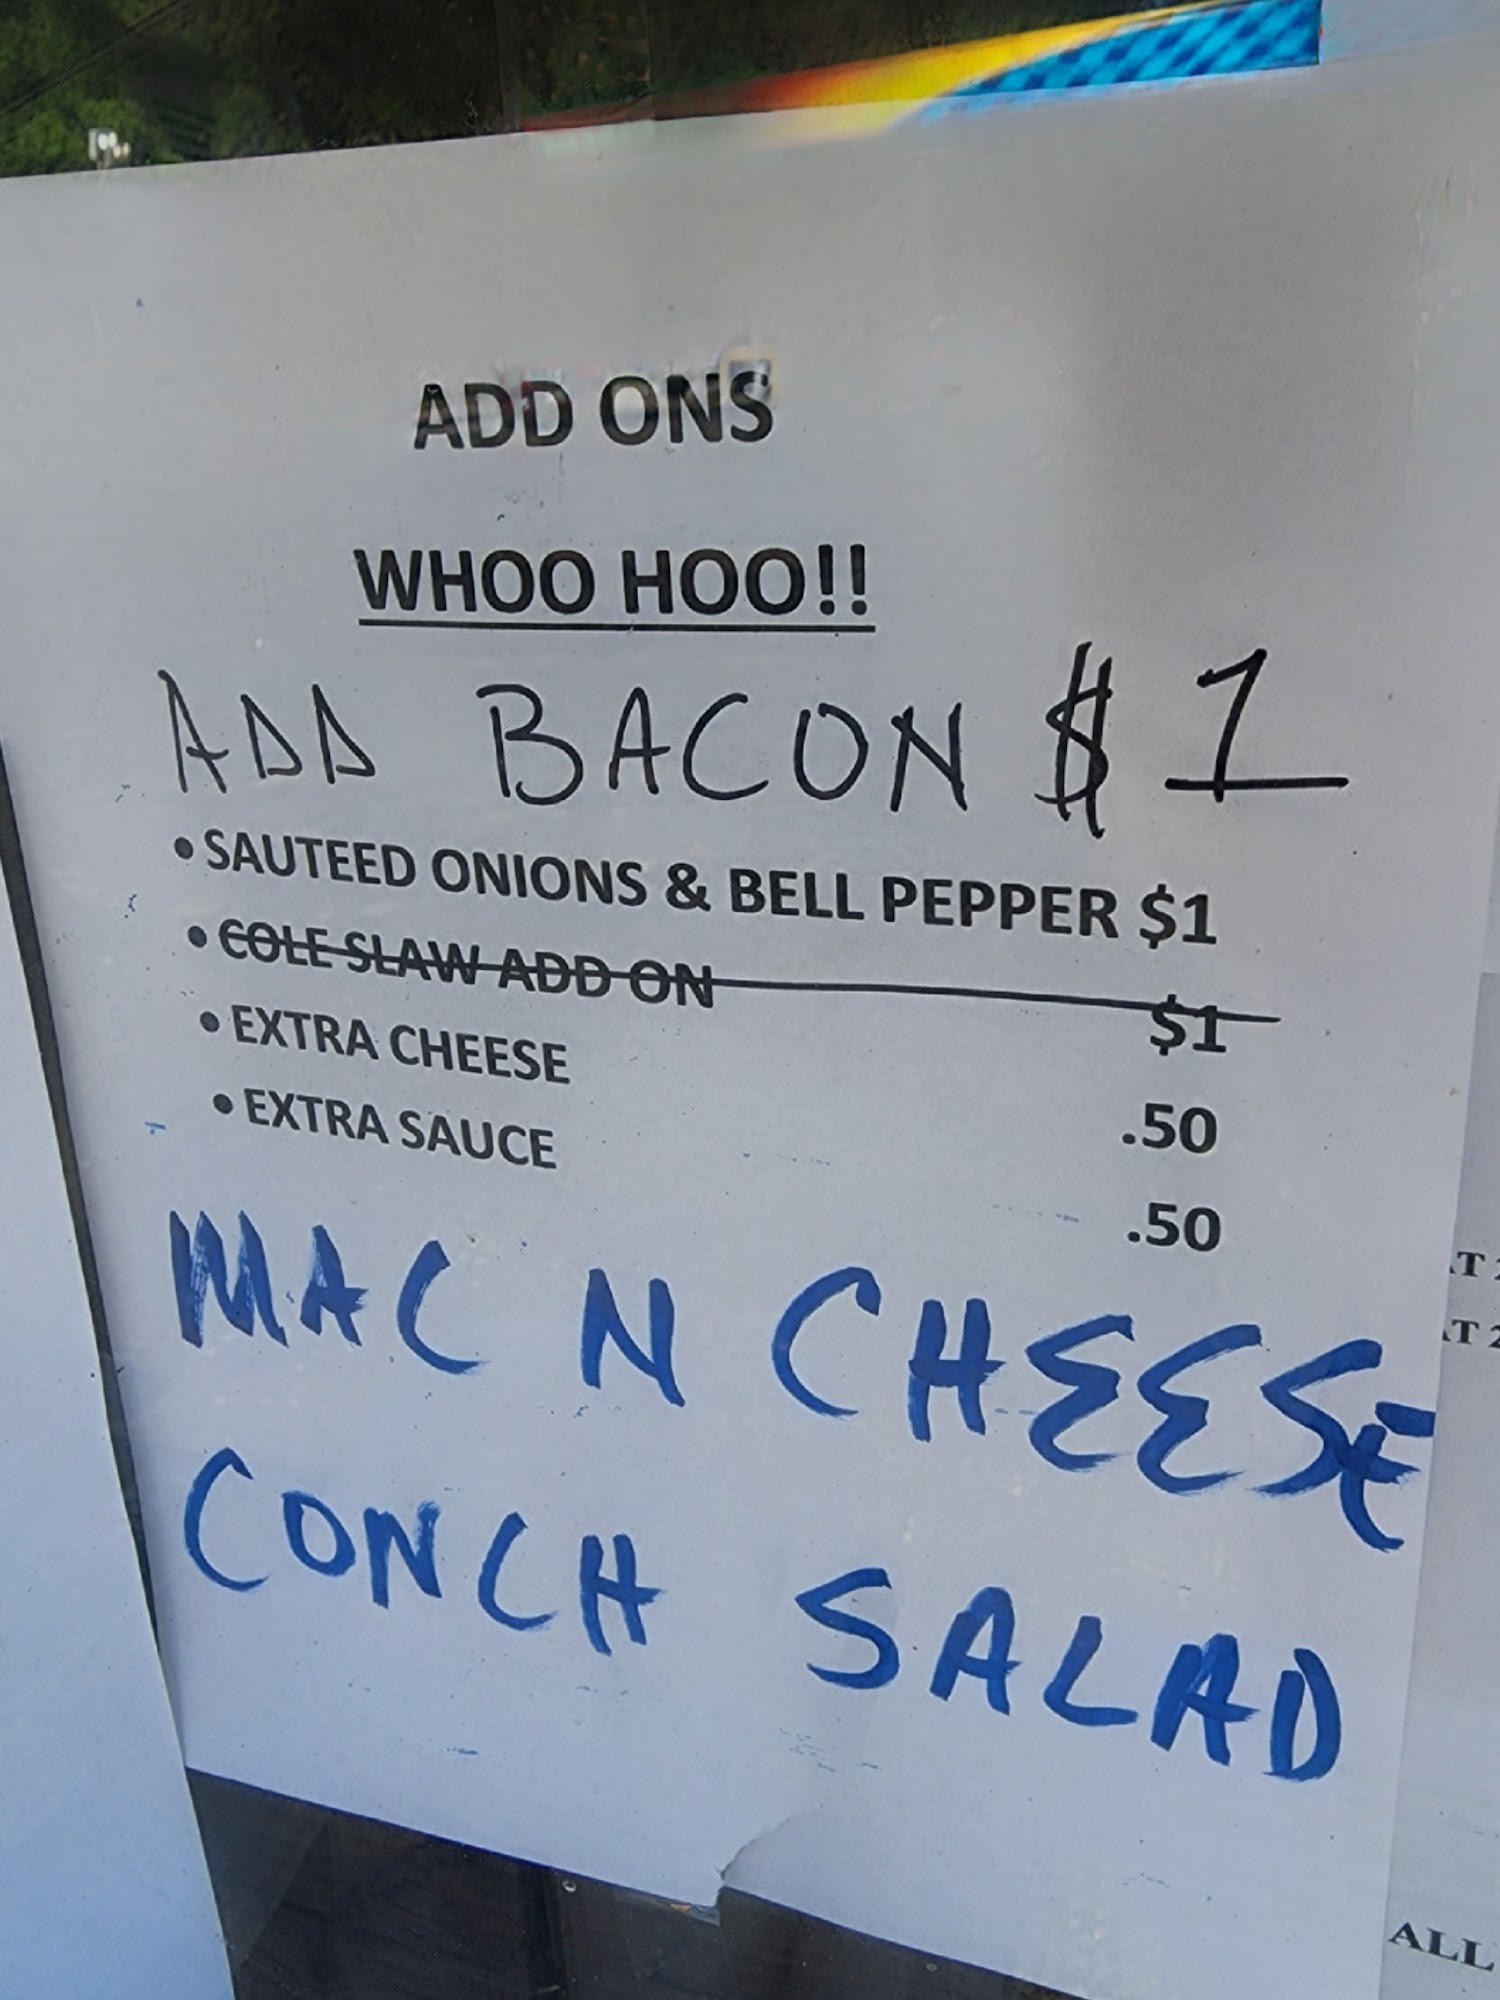 ADD ONS
WHOO HOO!!
ADD BACON $1
• SAUTEED ONIONS & BELL PEPPER $1
• COLE SLAW ADD ON $1
• EXTRA CHEESE .50
• EXTRA SAUCE .50
MAC N CHEESE
CONCH SALAD
ALL